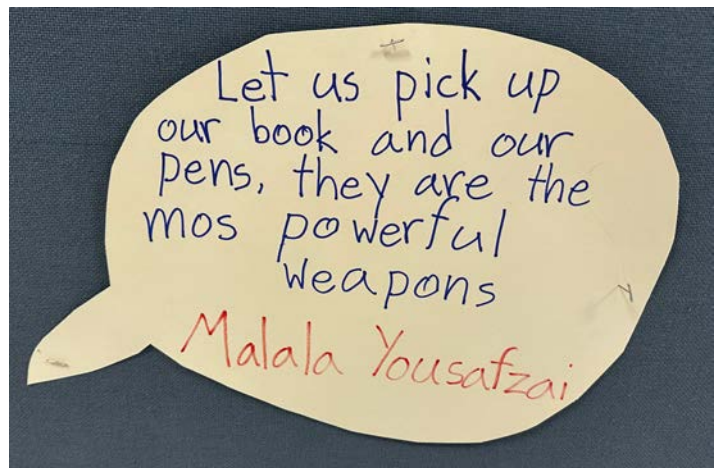 Let us pick up
our book and our
pens, they are the
mos powerful
weapons
Malala Yousafzai